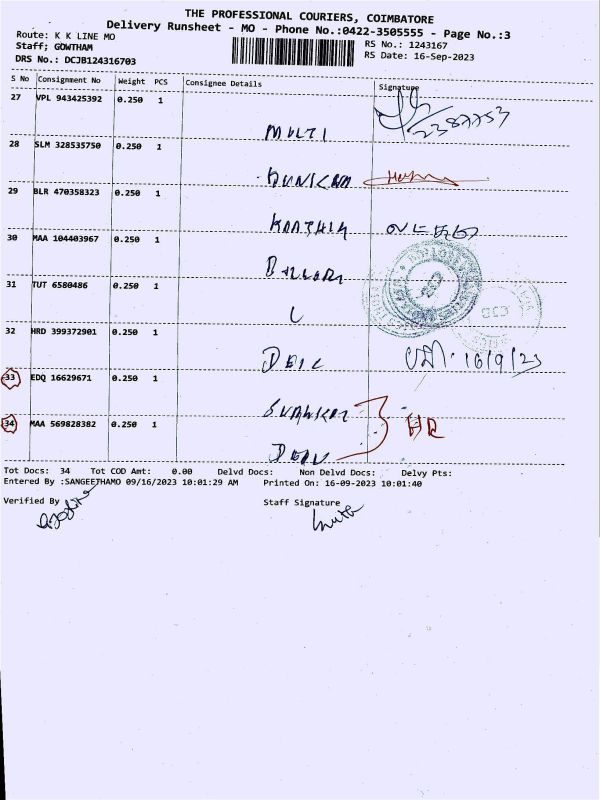 THE PROFESSIONAL COURIERS, COIMBATORE
Delivery Runsheet - MO - Phone No.:0422-3505555 - Page No.:3
Route: K K LINE MO
RS No.: 1243167
Staff; GOWTHAM
RS Date: 16-Sep-2023
DRS No.: DCJB124316703
S No Consignment No Weight PCS Consignee Details Signature
27 VPL 943425392 0.250 1
MULTI 2387753
28 SLM 328535750 0.250 1
29 BLR 470358323 0.250 1
KARTHIK
30 MAA 104403967 0.250 1
31 TUT 6580486 0.250 1
L
32 HRD 399372901 0.250 1
16/9/23
33 EDQ 16629671 0.250 1
HR
34 MAA 569828382 0.250 1
Tot Docs: 34 Tot COD Amt: 0.00 Delvd Docs: Non Delvd Docs: Delvy Pts:
Entered By :SANGEETHAMO 09/16/2023 10:01:29 AM Printed On: 16-09-2023 10:01:40
Verified By Staff Signature